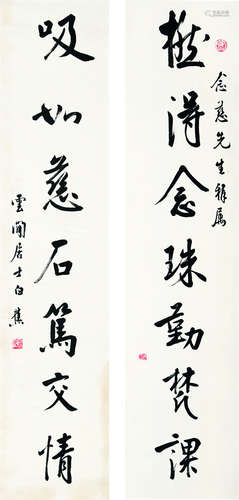 撚得念珠勤梵課
念慈先生雅属
吸如慈石篤交情
雲間居士白蕉